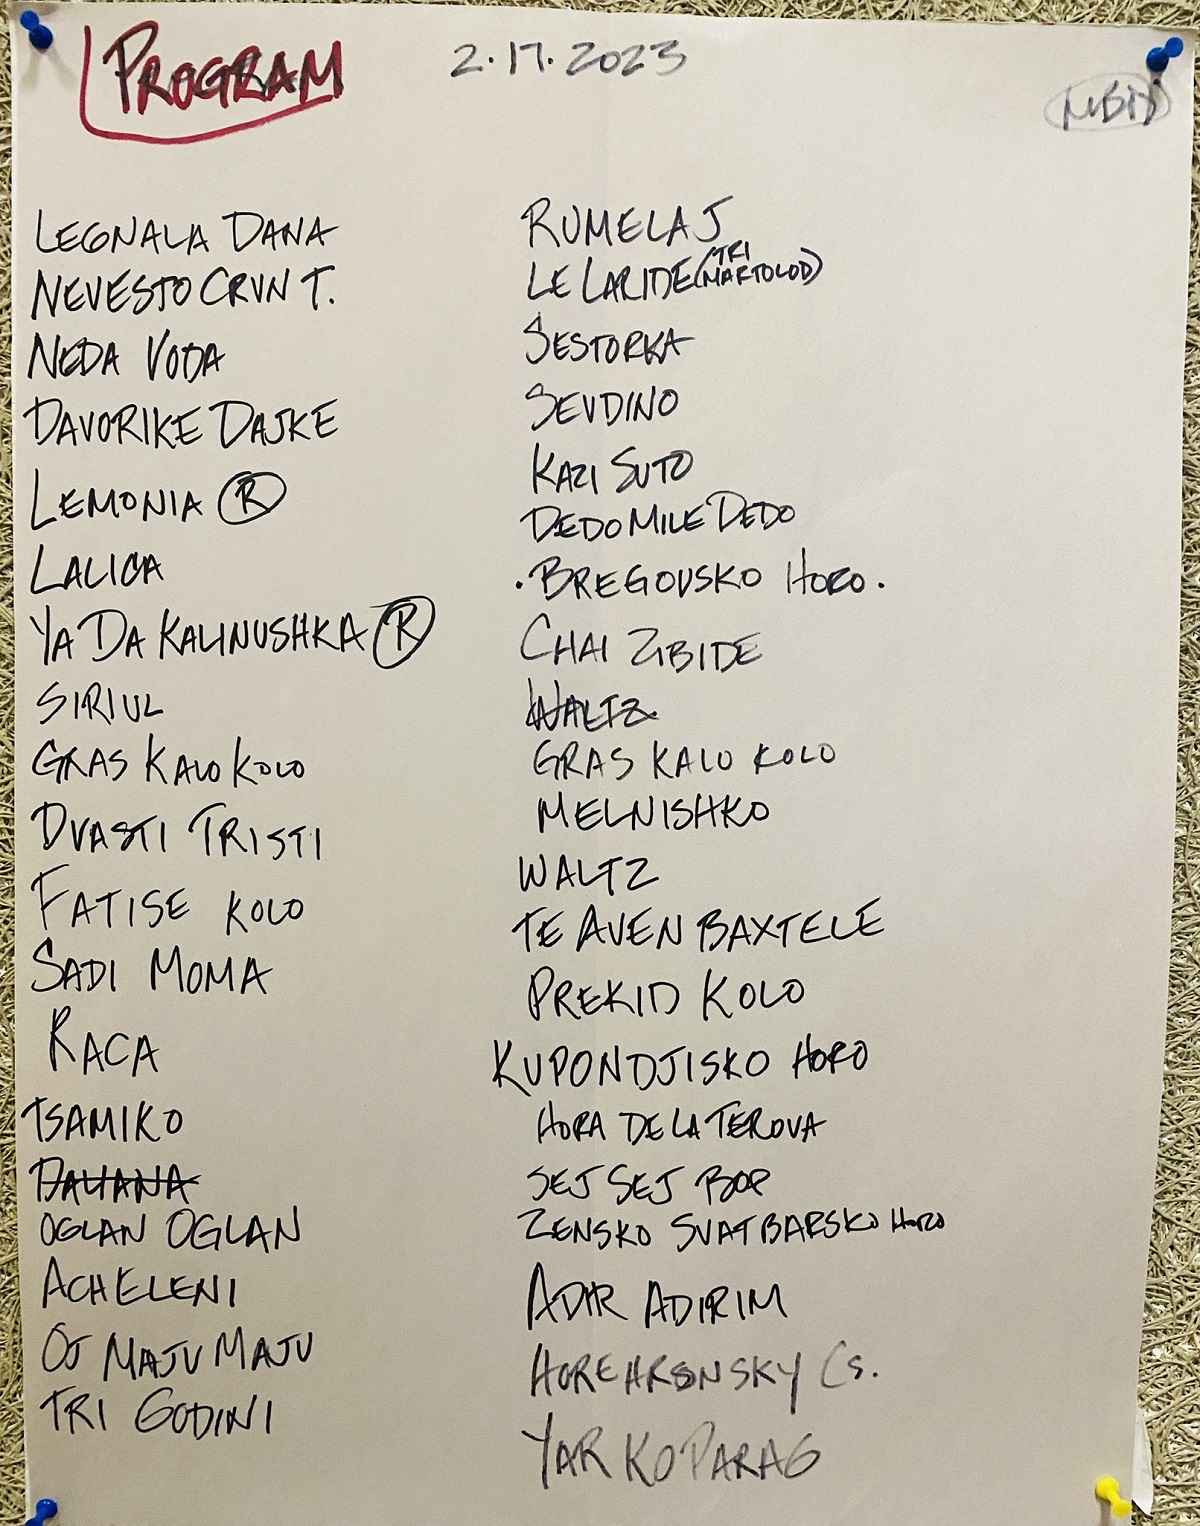 PROGRAM
2.17.2023
LEGNALA DANA
NEVESTO CRVN T.
NEDA VODA
DAVORIKE DAJKE
LEMONIA R
LALICA
YA DA KALINUSHKA R
SIRIUL
GRAS KALO KOLO
DVASTI TRISTI
FATISE KOLO
SADI MOMA
RACA
TSAMIKO
OGLAN OGLAN
ACH ELENI
OJ MAJU MAJU
TRI GODINI
RUMELAJ
LE LARIDE (TRI MARTOLOD)
SESTORKA
SEVDINO
KAZI SUTO
DEDO MILE DEDO
· BREGOVSKO HORO ·
CHAI ZBIDE
WALTZ
GRAS KALO KOLO
MELNISHKO
WALTZ
TE AVEN BAXTELE
PREKID KOLO
KUPONDJISKO HORO
HORA DE LA TEROVA
SEJ SEJ BOP
ZENSKO SVATBARSKO HORO
ADIR ADIRIM
CS.
YARKO PARAG